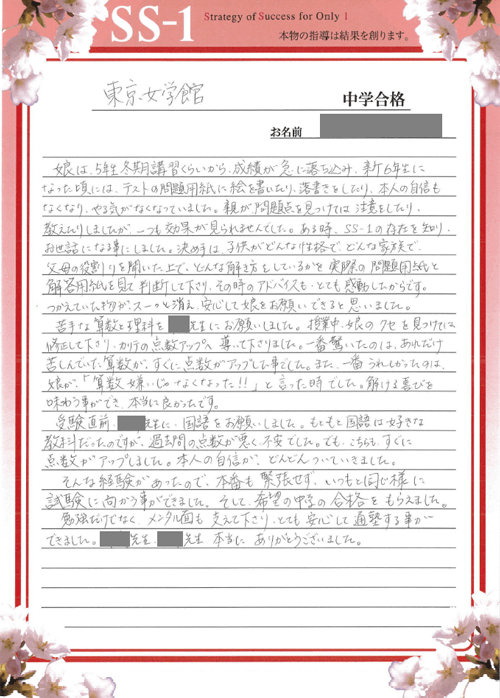 SS-1
Strategy of Success for Only 1
本物の指導は結果を創ります。
東京女学館
中学合格
お名前
娘は、5年生冬期講習くらいから、成績が急に落ち込み、新6年生に
なった頃には、テストの問題用紙に絵を書いたり、落書きをしたり、本人の自信も
なくなり、やる気がなくなっていました。親が問題点を見つけては注意をしたり、
教えたりしましたが、一つも効果が見られませんでした。ある時、SS-1の存在を知り、
お世話になる事にしました。決め手は、子供がどんな性格で、どんな家族で、
父母の役割りを聞いた上で、どんな解き方をしているかを実際の問題用紙と
解答用紙を見て判断して下さり、その時のアドバイスも、とても感動したからです。
つかえていた物が、スーッと消え、安心して娘をお願いできると思いました。
苦手な算数と理科を 先生にお願いしました。授業中、娘のクセを見つけては
修正して下さり、カリテの点数アップへ導いて下さりました。一番驚いたのは、あれだけ
苦しんでいた算数が、すぐに点数がアップした事でした。また、一番うれしかったのは、
娘が、「算数嫌いじゃなくなった!!」と言った時でした。解ける喜びを
味わう事ができ、本当に良かったです。
受験直前、 先生に、国語をお願いしました。もともと国語は好きな
教科だったのですが、過去問の点数が悪く、不安でした。でも、こちらも、すぐに
点数がアップしました。本人の自信が、どんどんついていきました。
そんな経験があったので、本番も緊張せず、いつもと同じ様に
試験に向かう事ができました。そして、希望の中学の合格をもらえました。
勉強だけでなく、メンタル面も支えて下さり、とても安心して通塾する事が
できました。 先生、 先生 本当に ありがとうございました。